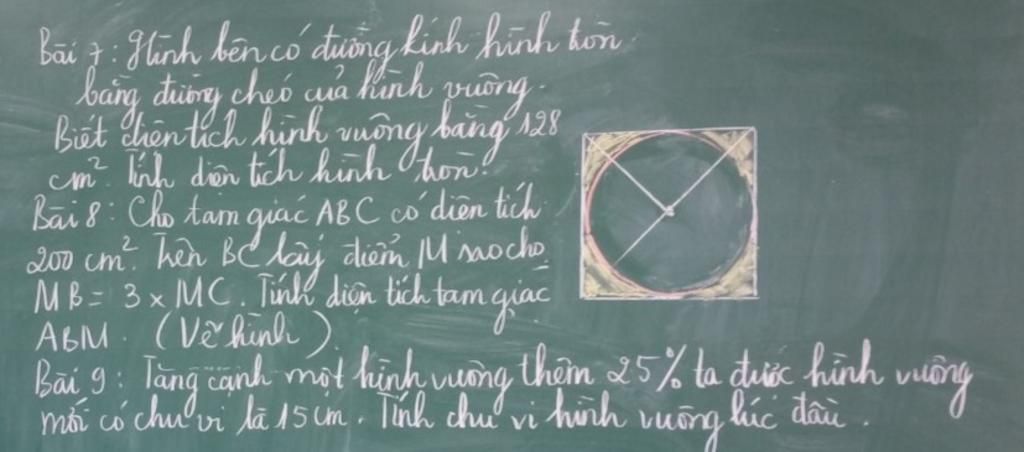 Bài 7: Hình bên có đường kính hình tròn
bằng đường chéo của hình vuông.
Biết diện tích hình vuông bằng 128
cm². Tính diện tích hình tròn.
Bài 8: Cho tam giác ABC có diện tích
200 cm². Trên BC lấy điểm M sao cho
MB = 3 × MC. Tính diện tích tam giác
ABM. (Vẽ hình).
Bài 9: Tăng cạnh một hình vuông thêm 25% ta được hình vuông
mới có chu vi là 15cm. Tính chu vi hình vuông lúc đầu.